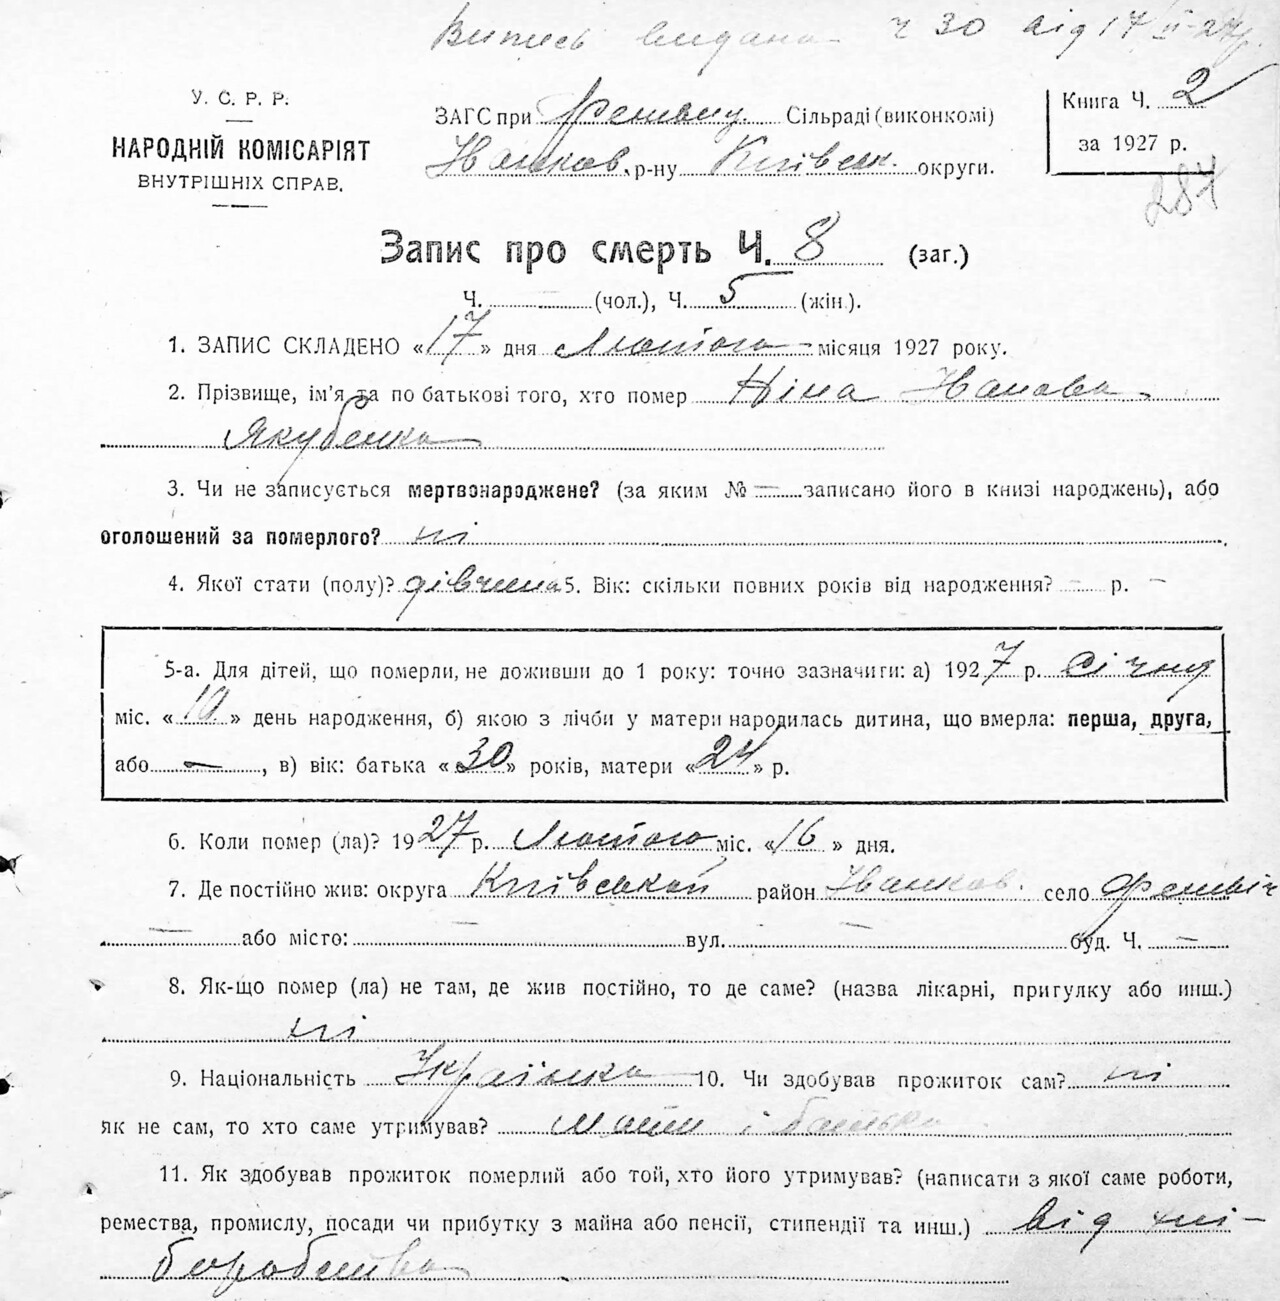 Випись видана ч 30 від 17/II-27р.
У. С. Р. Р.
НАРОДНІЙ КОМІСАРІЯТ
ВНУТРІШНІХ СПРАВ.
ЗАГС при Сільраді (виконкомі)
Іванков. р-ну Київськ. округи.
Книга Ч. 2
за 1927 р.
287
Запис про смерть Ч. 8 (заг.)
Ч. — (чол.), Ч. 5 (жін.).
1. ЗАПИС СКЛАДЕНО «17» дня Лютого місяця 1927 року.
2. Прізвище, ім'я та по батькові того, хто помер Ніна Іванова
Якубенко
3. Чи не записується мертвонароджене? (за яким № — записано його в книзі народжень), або
оголошений за померлого? ні
4. Якої стати (полу)? дівчина 5. Вік: скільки повних років від народження? — р. —
5-а. Для дітей, що померли, не доживши до 1 року: точно зазначити: а) 1927 р. Січня
міс. «10» день народження, б) якою з лічби у матери народилась дитина, що вмерла: перша, друга,
або —, в) вік: батька «30» років, матери «24» р.
6. Коли помер (ла)? 1927 р. Лютого міс. «16» дня.
7. Де постійно жив: округа Київської район Іванков. село
— або місто: вул. — буд. Ч. —
8. Як-що помер (ла) не там, де жив постійно, то де саме? (назва лікарні, пригулку або инш.)
ні
9. Національність Українка 10. Чи здобував прожиток сам? ні
як не сам, то хто саме утримував? Мати і батько
11. Як здобував прожиток померлий або той, хто його утримував? (написати з якої саме роботи,
ремества, промислу, посади чи прибутку з майна або пенсії, стипендії та инш.) від хлі-
боробства